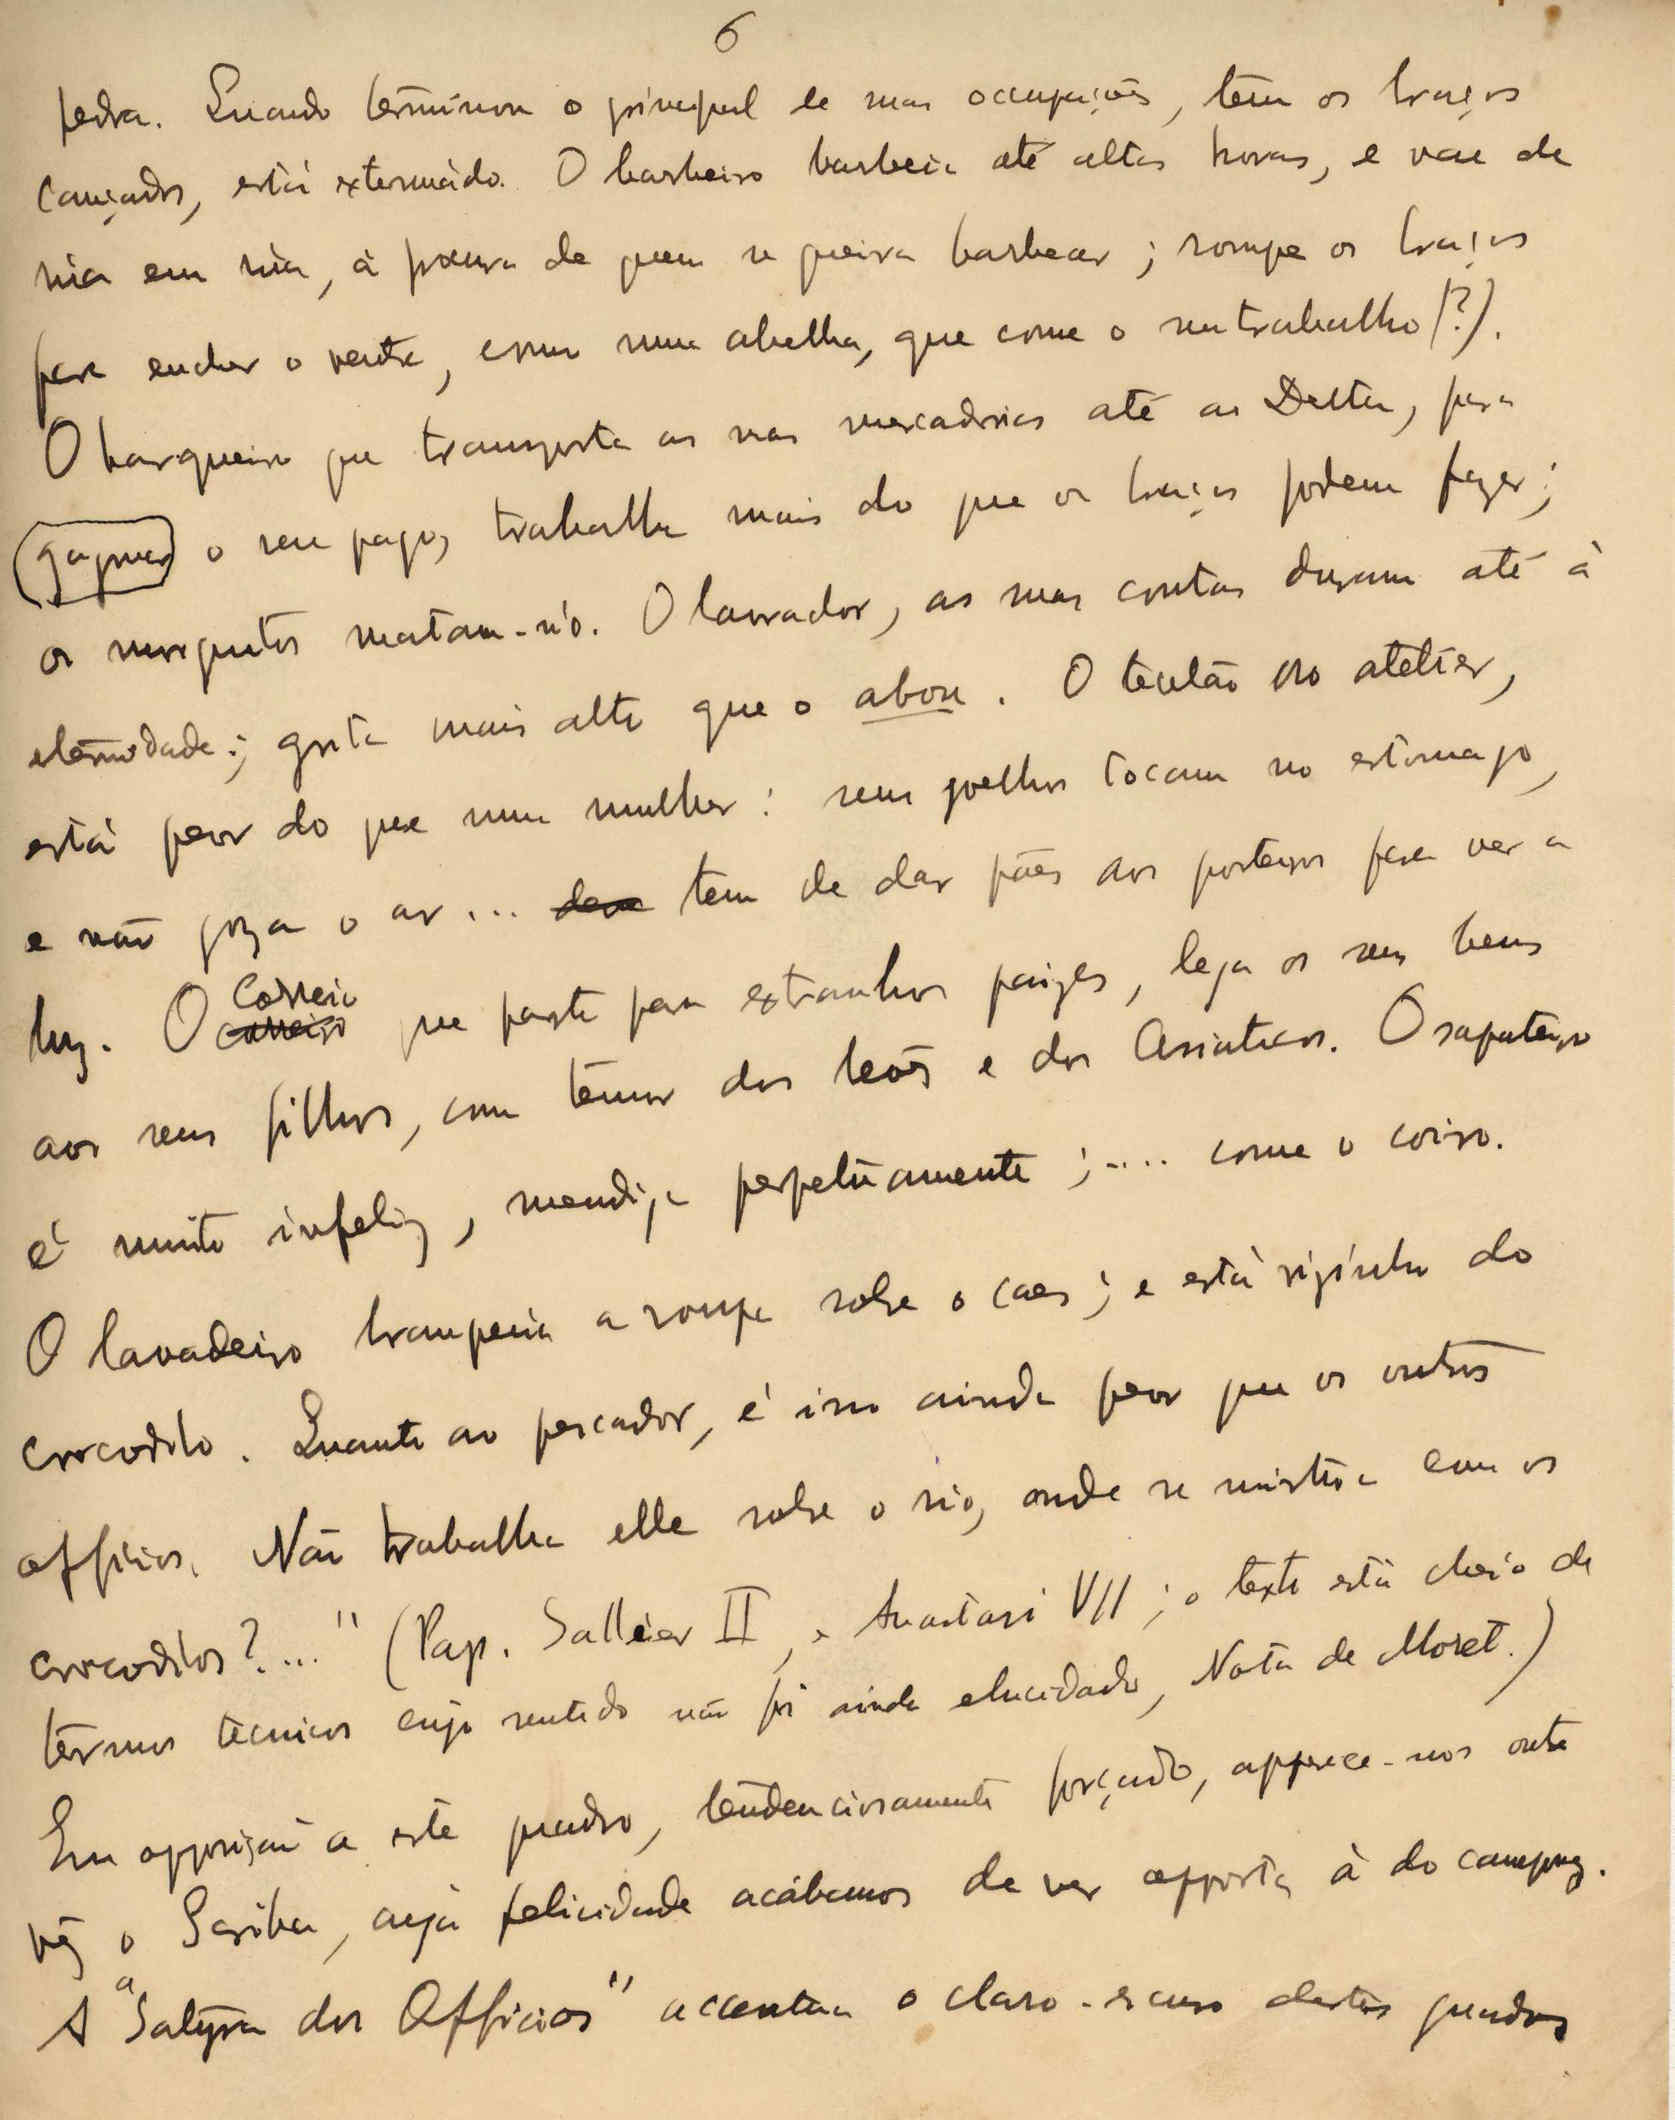 6
pedra. Quando terminou o principal de suas occupações, tem os braços
cançados, está extenuado. O barbeiro barbeia até altas horas, e vae de
rua em rua, à procura de quem se queira barbear; rompe os braços
para encher o ventre, como uma abelha, que come o seu trabalho (?).
O barqueiro que transporta as suas mercadorias até ao Delta, para
gagner o seu pago, trabalha mais do que os braços podem fazer;
os mosquitos matam-n'o. O lavrador, as suas contas duram até à
eternidade; grita mais alto que o abou. O tecelão no atelier,
está peor do que uma mulher: seus joelhos tocam no estomago,
e não goza o ar... tem de dar pães aos porteiros para ver a
luz. O Correio que parte para extranhos paizes, lega os seus bens
aos seus filhos, com temor dos leões e dos Asiaticos. O sapateiro
é muito infeliz, mendiga perpetuamente;.... come o coiro.
O lavadeiro branqueia a roupa sobre o caes; e está visinho do
crocodilo. Quanto ao pescador, é isso ainda peor que os outros
officios. Não trabalha elle sobre o rio, onde se mistura com os
crocodilos?..." (Pap. Sallier II, e Anastasi VII; o texto está cheio de
termos tecnicos cujo sentido não foi ainda elucidado, Nota de Moret.)
Em opposição a este quadro, tendenciosamente forçado, apparece-nos outra
vez o Scriba, cuja felicidade acabamos de ver opposta à do camponez.
A "Satyra dos Officios" accentua o claro-escuro destes quadros